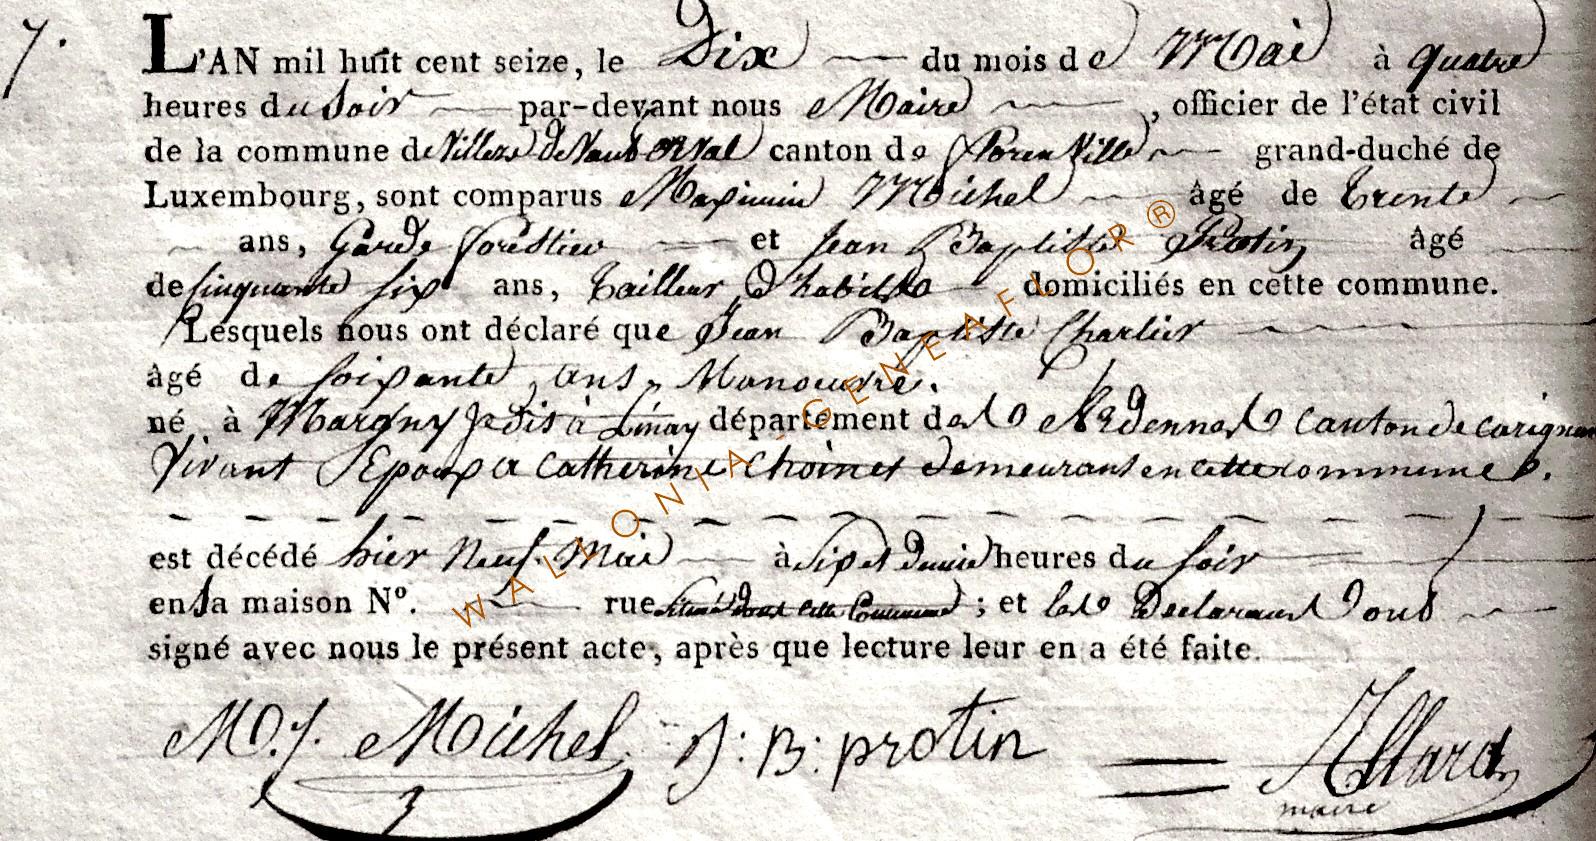 7.
L'AN mil huit cent seize, le Dix du mois de Mai à quatre
heures du Soir par-devant nous Maire , officier de l'état civil
de la commune de Villers devant orval canton de florenville grand-duché de
Luxembourg, sont comparus Maximin Michel âgé de trente
ans, Garde forestier et Jean Baptiste Protin âgé
de cinquante six ans, tailleur d'habits domiciliés en cette commune.
Lesquels nous ont déclaré que Jean Baptiste Charlier
âgé de soixante ans, Manoeuvre.
né à Margny département des Ardennes canton de carignan
Vivant Epoux a Catherine Choinet demeurant en cette commune.
est décédé hier neuf Mai à six et demie heures du soir
en sa maison Nº. rue située dans cette Commune ; et les Declarans ont
signé avec nous le présent acte, après que lecture leur en a été faite.
M. J. Michel J: B: protin Allard
maire
WALLONIA-GENEAFLOR®